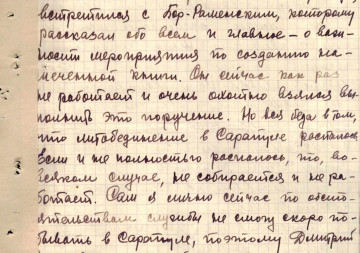 встретился с Бор-Раменским, которому
рассказал обо всем и главное – о важ-
ности мероприятия по созданию на-
меченной книги. Он сейчас как раз
не работает и очень охотно взялся вы-
полнить это поручение. Но вся беда в том,
что литобъединение в Сарапуле распалось.
Если и не полностью распалось, то, во-
всяком случае, не собирается и не ра-
ботает. Сам я лично сейчас по обсто-
ятельствам службы не смогу скоро по-
бывать в Сарапуле, поэтому Дмитрий